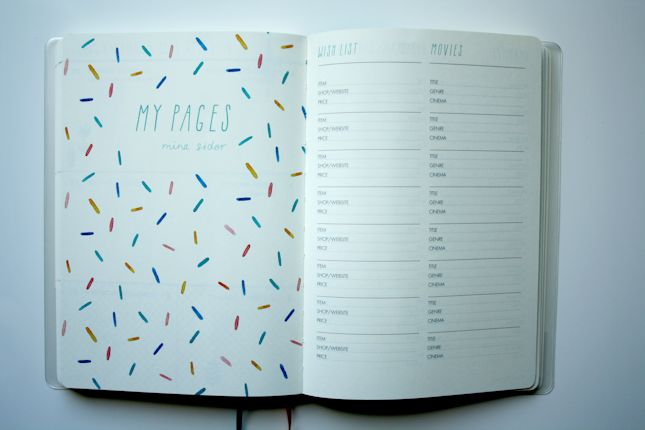 MY PAGES
mina sidor
WISH LIST
ITEM
SHOP/WEBSITE
PRICE
ITEM
SHOP/WEBSITE
PRICE
ITEM
SHOP/WEBSITE
PRICE
ITEM
SHOP/WEBSITE
PRICE
ITEM
SHOP/WEBSITE
PRICE
ITEM
SHOP/WEBSITE
PRICE
ITEM
SHOP/WEBSITE
PRICE
ITEM
SHOP/WEBSITE
PRICE
MOVIES
TITLE
GENRE
CINEMA
TITLE
GENRE
CINEMA
TITLE
GENRE
CINEMA
TITLE
GENRE
CINEMA
TITLE
GENRE
CINEMA
TITLE
GENRE
CINEMA
TITLE
GENRE
CINEMA
TITLE
GENRE
CINEMA